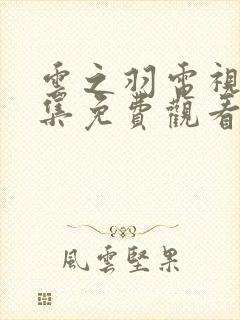 雲之羽電視
集免費觀看
風雲堅果